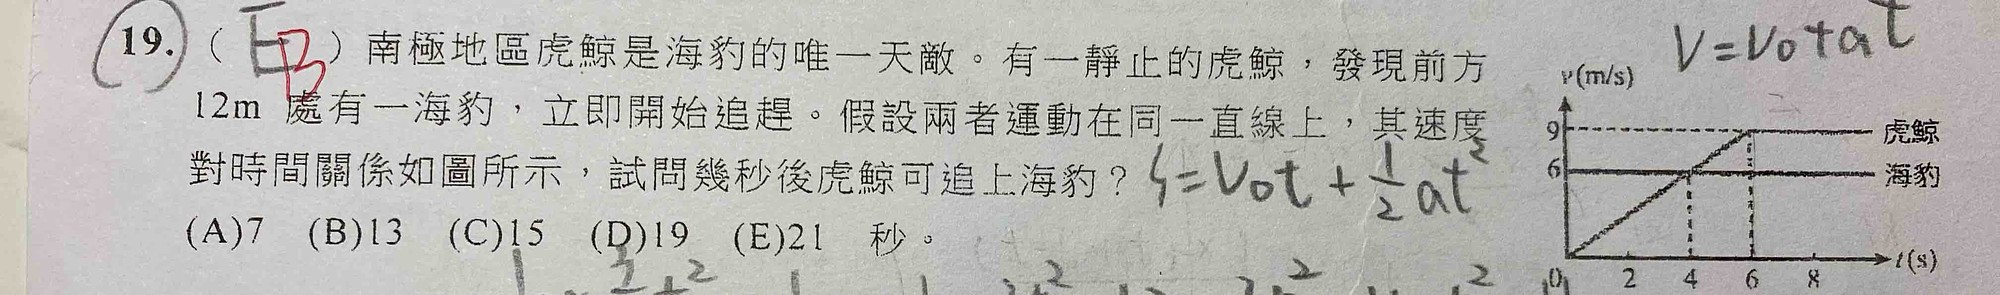 19. ( E B ) 南極地區虎鯨是海豹的唯一天敵。有一靜止的虎鯨，發現前方
12m 處有一海豹，立即開始追趕。假設兩者運動在同一直線上，其速度
對時間關係如圖所示，試問幾秒後虎鯨可追上海豹？
(A)7 (B)13 (C)15 (D)19 (E)21 秒。
S=V₀t+½at²
V=V₀+at
v(m/s)
9 虎鯨
6 海豹
0 2 4 6 8 t(s)